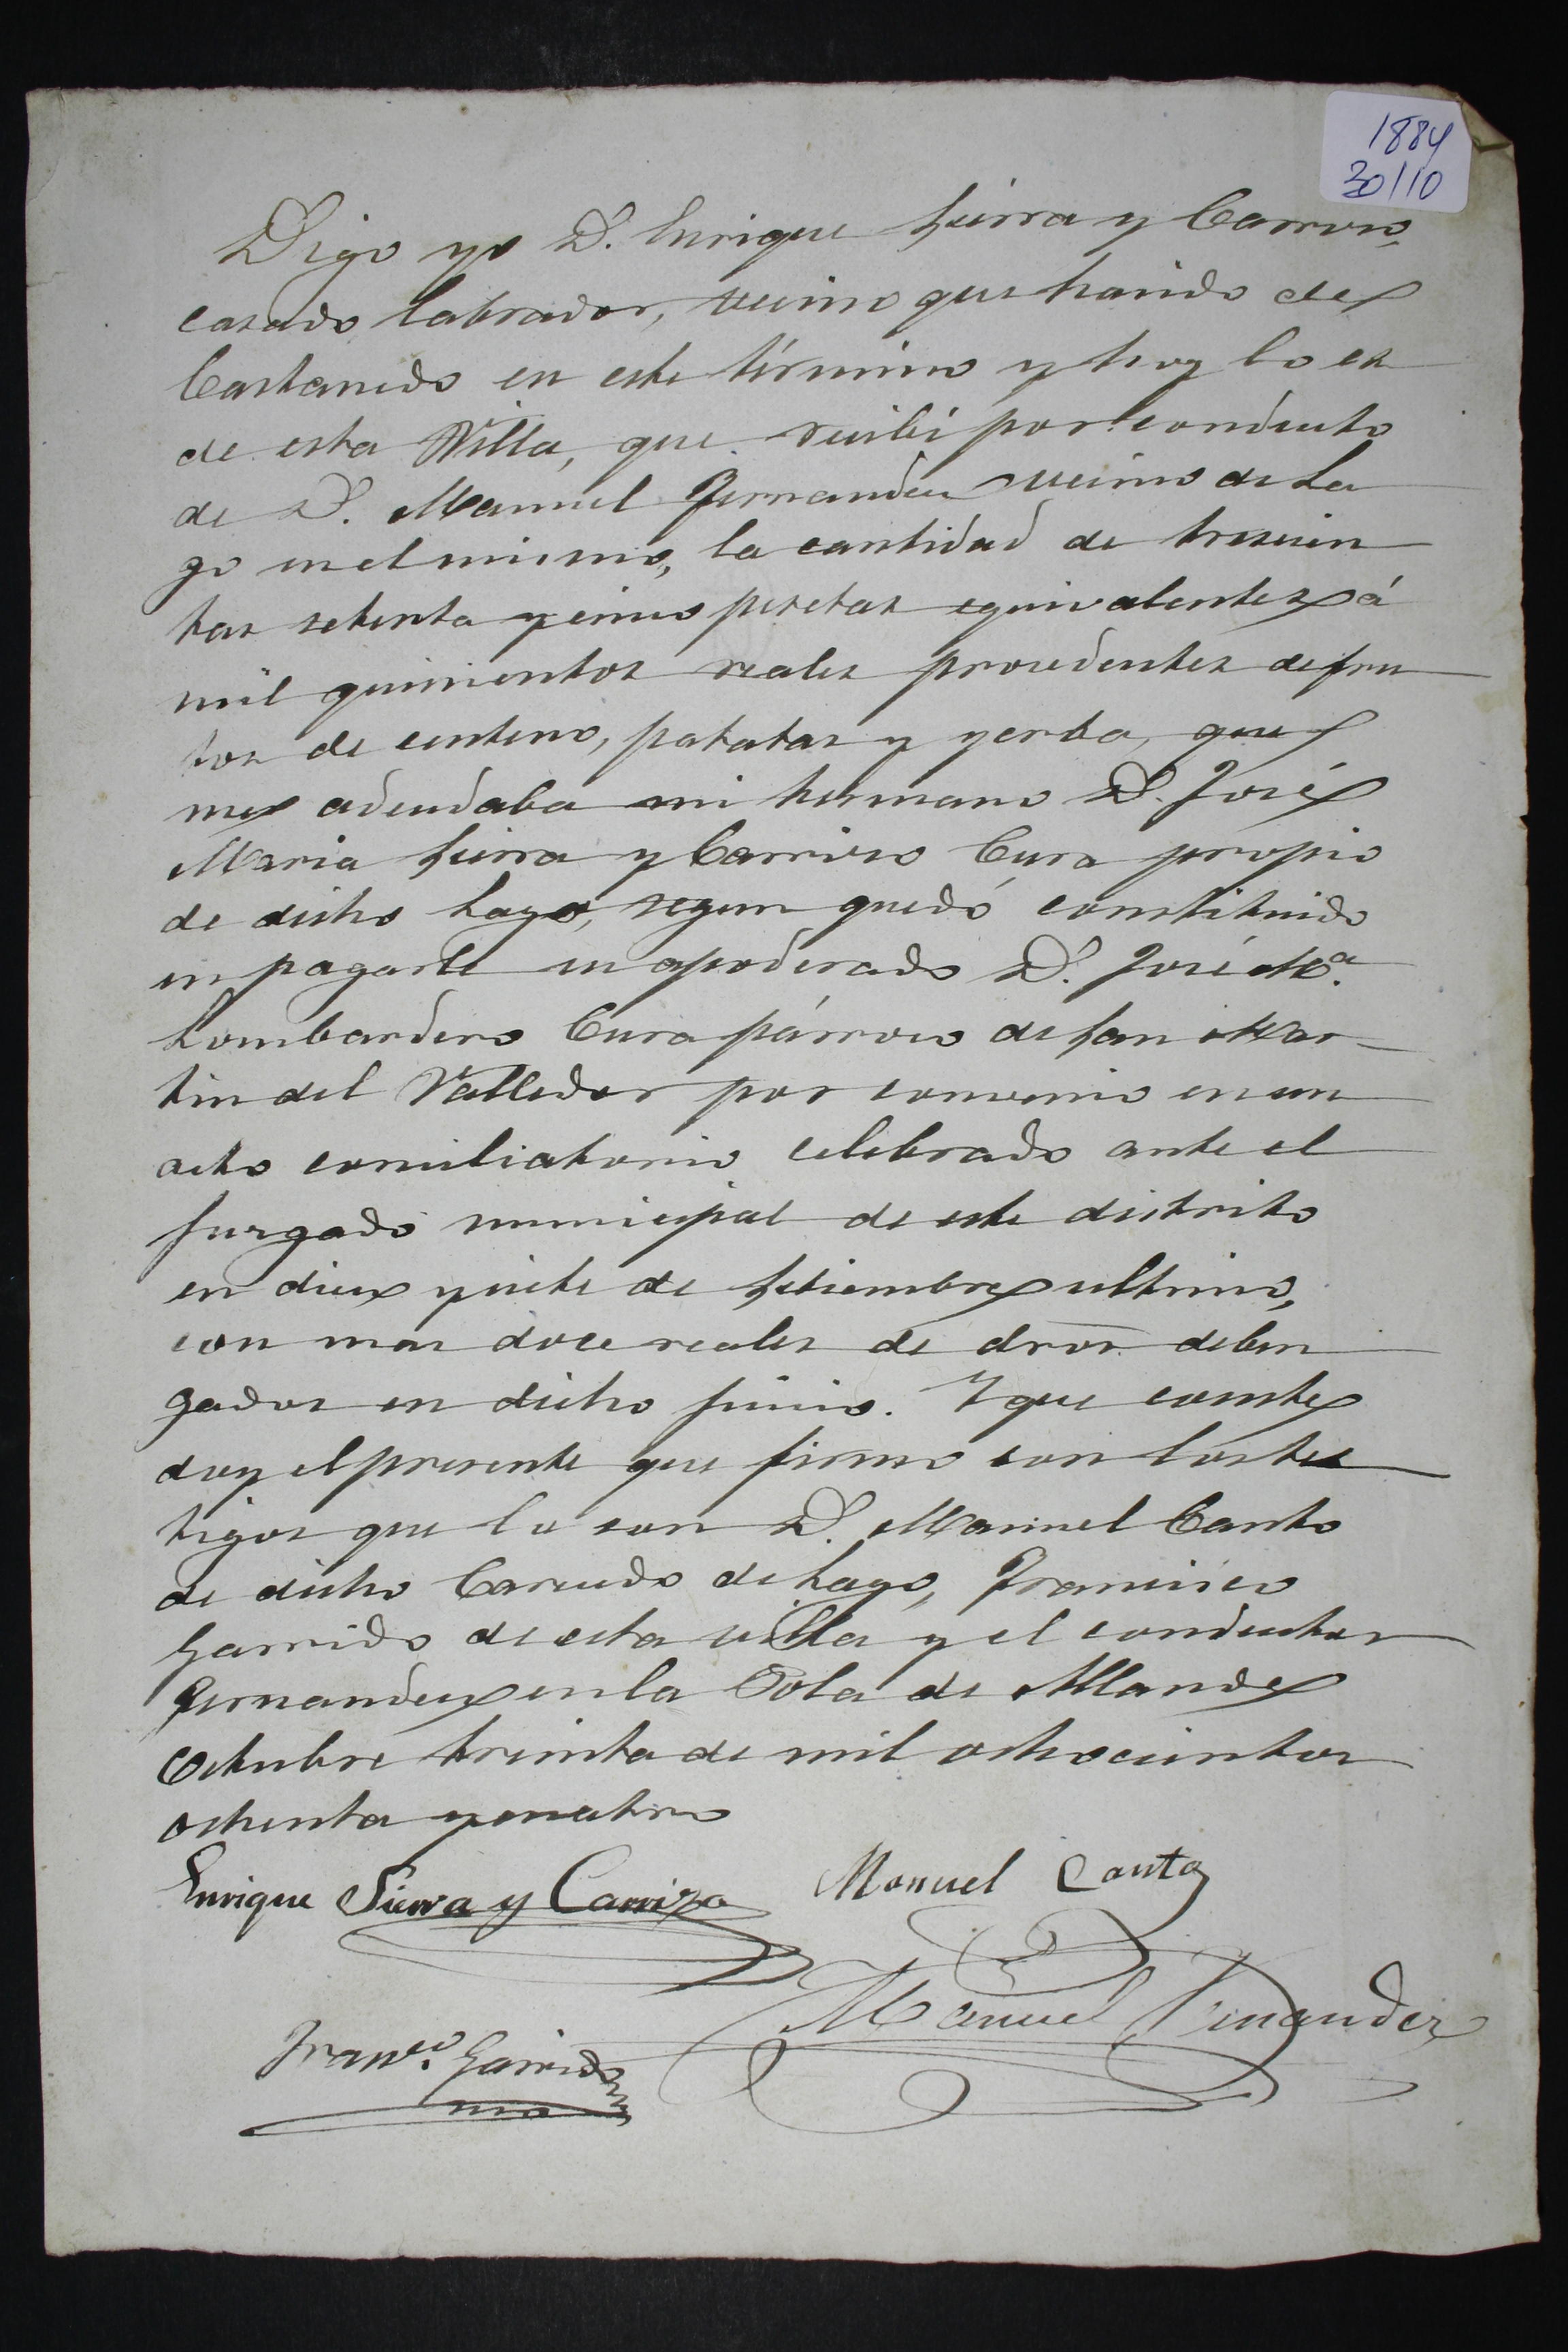 1884
30/10
Digo yo D. Enrique Sierra y Carrizo,
casado labrador, vecino que ha sido de
Castanedo en este término y hoy lo es
de esta Villa, que recibí por conducto
de D. Manuel Fernandez vecino de La
go en el mismo, la cantidad de trescien
tas setenta y cinco pesetas equivalentes á
mil quinientos reales procedentes de fru
tos de centeno, patatas y yerba, que
me adeudaba mi hermano D. José
Maria Sierra y Carrizo Cura propio
de dicho Lago, segun quedó constituido
en pagarle su apoderado D. José Mª.
Lombardero Cura párroco de San Mar-
tin del Valledor por convenio en un
acto conciliatorio celebrado ante el
Juzgado municipal de este distrito
en diez y siete de Setiembre ultimo,
con mas doce reales de dros. deben
gados en dicho juicio. Y que conste
doy el presente que firmo con los tes
tigos que lo son D. Manuel Canto
de dicho de Lago, Francisco
Garrido de esta villa y el conductor
Fernandez en la Pola de Allande
Octubre treinta de mil ochocientos
ochenta y cuatro
Enrique Sierra y Carrizo
Manuel Canto
Manuel Fernandez
Franco. Garrido